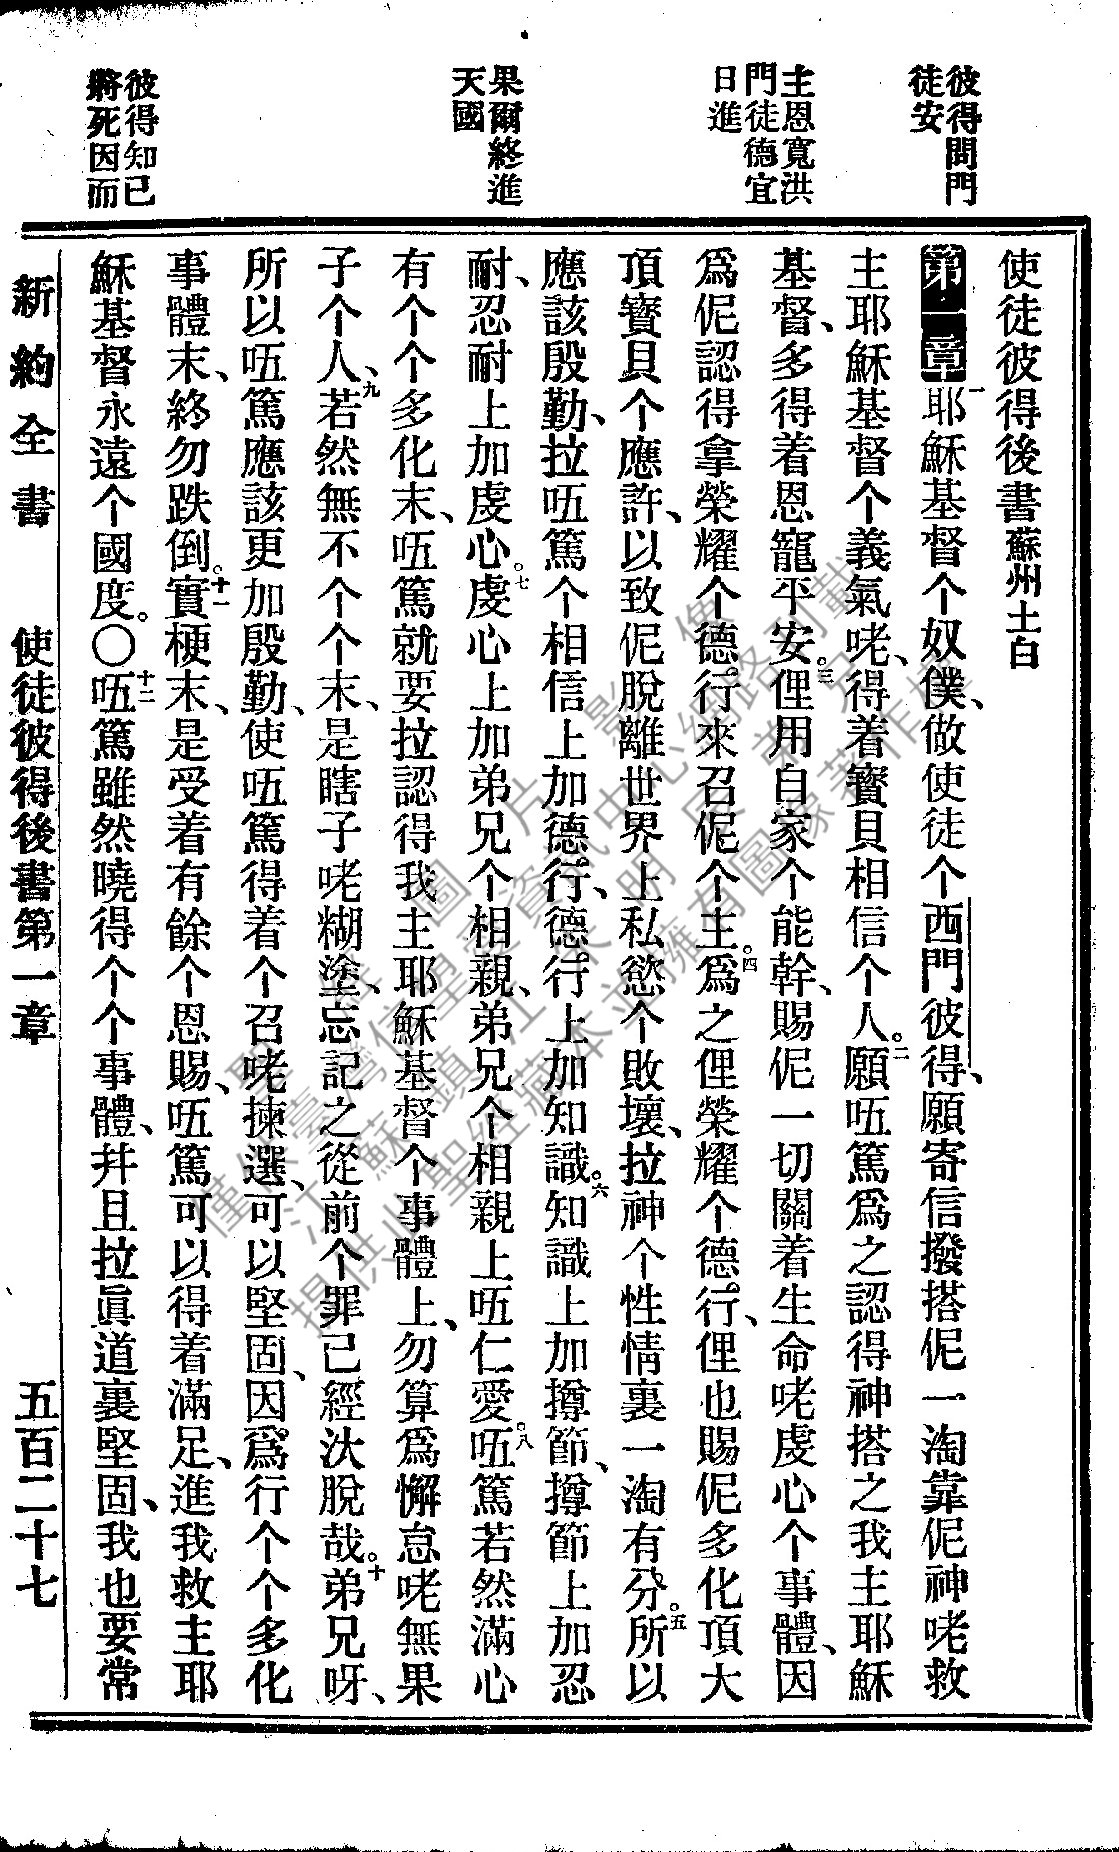 彼得問門
徒安
主恩寬洪
門徒德宜
日進
果爾終進
天國
彼得知已
將死因而
使徒彼得後書蘇州土白
第一章一耶穌基督个奴僕、做使徒个西門彼得、願寄信撥搭伲一淘靠伲神咾救
主耶穌基督个義氣咾、得着寶貝相信个人。二願𠍽篤爲之認得神搭之我主耶穌
基督、多得着恩寵平安。三俚用自家个能幹、賜伲一切關着生命咾虔心个事體、因
爲伲認得拿榮耀个德行來召伲个主。四爲之俚榮耀个德行、俚也賜伲多化頂大
頂寶貝个應許、以致伲脫離世界上私慾个敗壞、拉神个性情裏一淘有分。五所以
應該殷勤、拉𠍽篤个相信上加德行、德行上加知識。六知識上加撙節、撙節上加忍
耐、忍耐上加虔心。七虔心上加弟兄个相親、弟兄个相親上𠍽仁愛。八𠍽篤若然滿心
有个个多化末、𠍽篤就要拉認得我主耶穌基督个事體上、勿算爲懈怠咾無果
子个人、九若然無不个个末、是瞎子咾糊塗、忘記之從前个罪已經汏脫哉。十弟兄呀、
所以𠍽篤應該更加殷勤、使𠍽篤得着个召咾揀選、可以堅固、因爲行个个多化
事體末、終勿跌倒。十一實梗末、是受着有餘个恩賜、𠍽篤可以得着滿足、進我救主耶
穌基督永遠个國度。〇十二𠍽篤雖然曉得个个事體、幷且拉眞道裏堅固、我也要常
新約全書　使徒彼得後書第一章　五百二十七